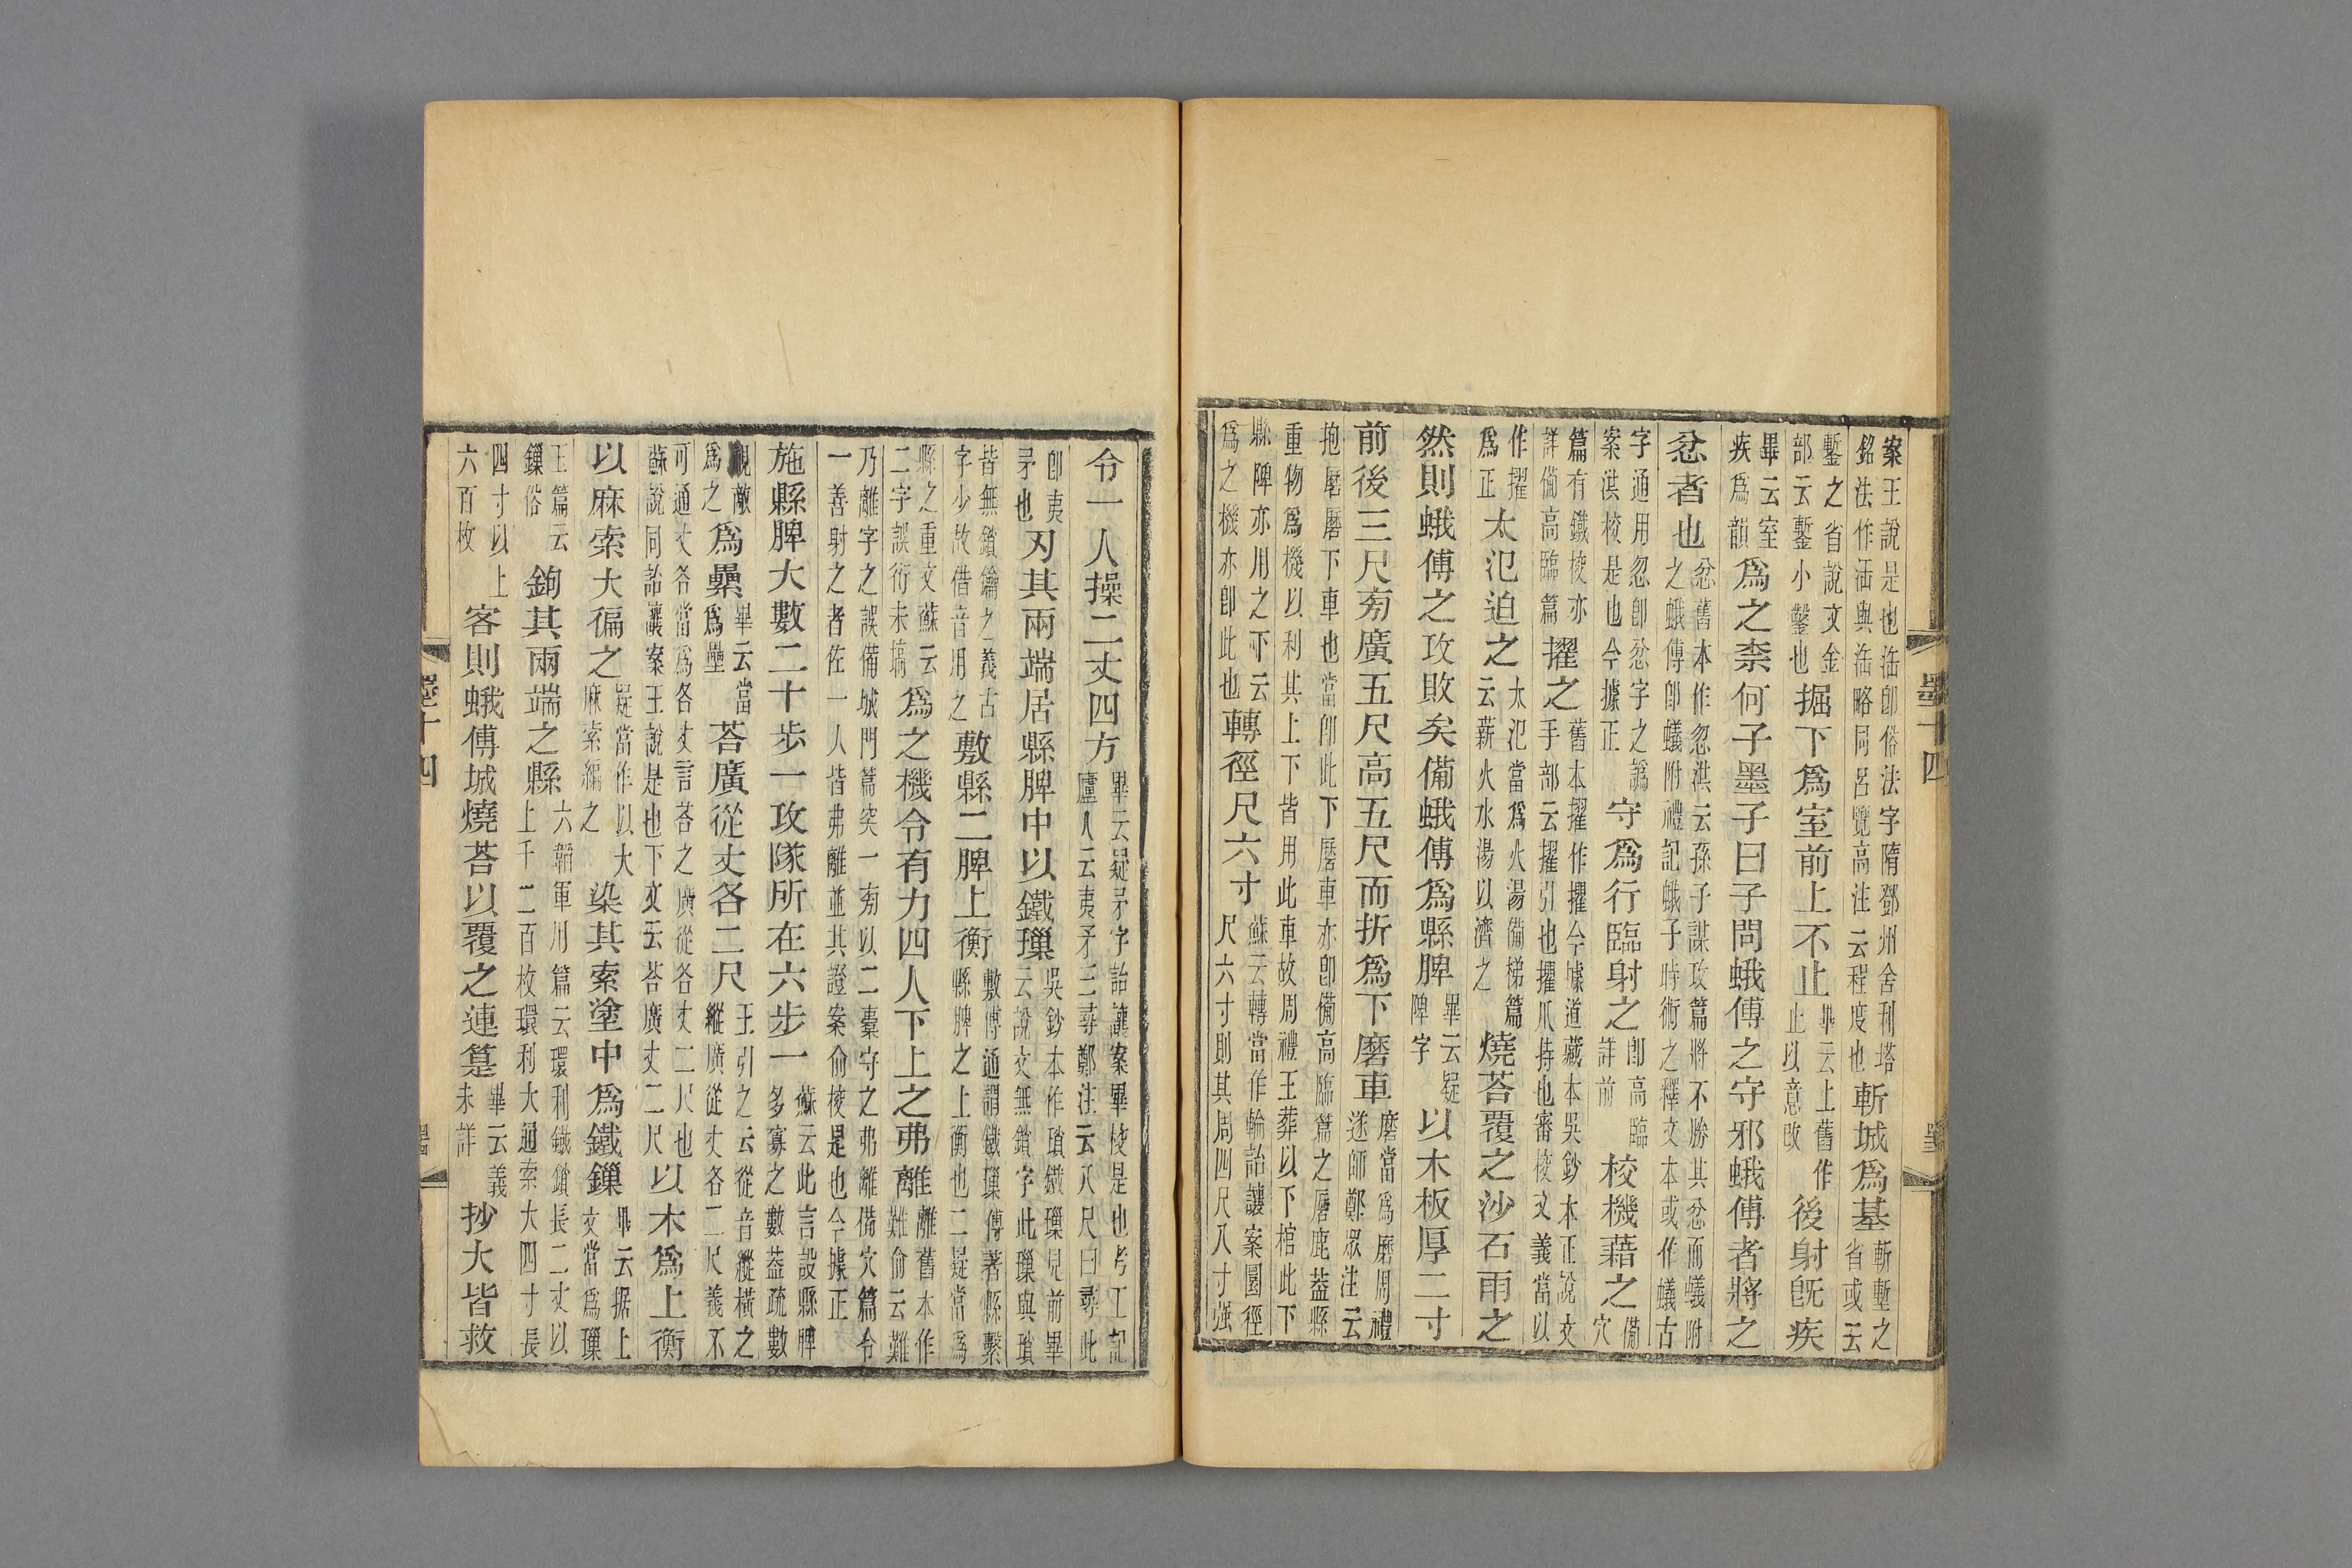 案王說是也浩卽俗法字隋鄧州舍利塔
銘法作浩與浩略同呂覽高注云程度也斬城爲基斬塹之
鏨之省說文金省或云
部云鏨小鑿也掘下爲室前上不止畢云上舊作止以意改後射旣疾
畢云室疾爲韻爲之柰何子墨子曰子問蛾傅之守邪蛾傅者將之
忿者也忿舊本作忽洪云孫子謀攻篇將不勝其忿而蟻附之蛾傅卽蟻附禮記蛾子時術之釋文本或作蟻古
字通用忽卽忿字之譌案洪校是也今據正守爲行臨射之卽高臨詳前校機藉之備穴
篇有鐵校亦詳備高臨篇擢之舊本擢作擢今據道藏本吳鈔本正說文手部云擢引也擢爪持也審校文義當以
作擢爲正太氾迫之太氾當爲火湯備梯篇云薪火水湯以濟之燒荅覆之沙石雨之
然則蛾傅之攻敗矣備蛾傅爲縣脾畢云疑陴字以木板厚二寸
前後三尺旁廣五尺高五尺而折爲下磨車磨當爲磿周禮遂師鄭眾注云
抱磿磿下車也當卽此下磿車亦卽備高臨篇之磿鹿葢縣
重物爲機以利其上下皆用此車故周禮王葬以下棺此下
縣陴亦用之下云爲之機亦卽此也轉徑尺六寸蘇云轉當作輪詒讓案圜徑尺六寸則其周四尺八寸強
墨十四
令一人操二丈四方畢云疑矛字詒讓案畢校是也考工記廬人云夷矛三尋鄭注云八尺曰尋此
卽夷矛也刃其兩端居縣脾中以鐵璅吳鈔本作瑣鐵璅見前畢云說文無鎖字此璅與瑣
皆無鎖鑰之義古字少故借音用之敷縣二脾上衡敷傅通謂鐵璅傅著縣繫縣脾之上衡也二疑當爲
縣之重文蘇云二字誤衍未塙爲之機令有力四人下上之弗離離舊本作難俞云難
乃離字之誤備城門篇突一旁以二橐守之弗離備穴篇令
一善射之者佐一人皆弗離並其證案俞校是也今據正
施縣脾大數二十步一攻隊所在六步一蘇云此言設縣脾多寡之數葢疏數
視敵爲之爲纍畢云當爲壘荅廣從丈各二尺王引之云從音縱橫之縱廣從丈各二尺義不
可通丈各當爲各丈言荅之廣從各丈二尺也
蘇說同詒讓案王說是也下文云荅廣丈二尺以木爲上衡
以麻索大徧之疑當作以大麻索編之染其索塗中爲鐵鏁畢云據上文當爲璅
王篇云鏁俗鉤其兩端之縣六韜軍用篇云環利鐵鎖長二丈以上千二百枚環利大通索大四寸長
四寸以上六百枚客則蛾傅城燒荅以覆之連筳畢云義未詳抄大皆救
墨十四